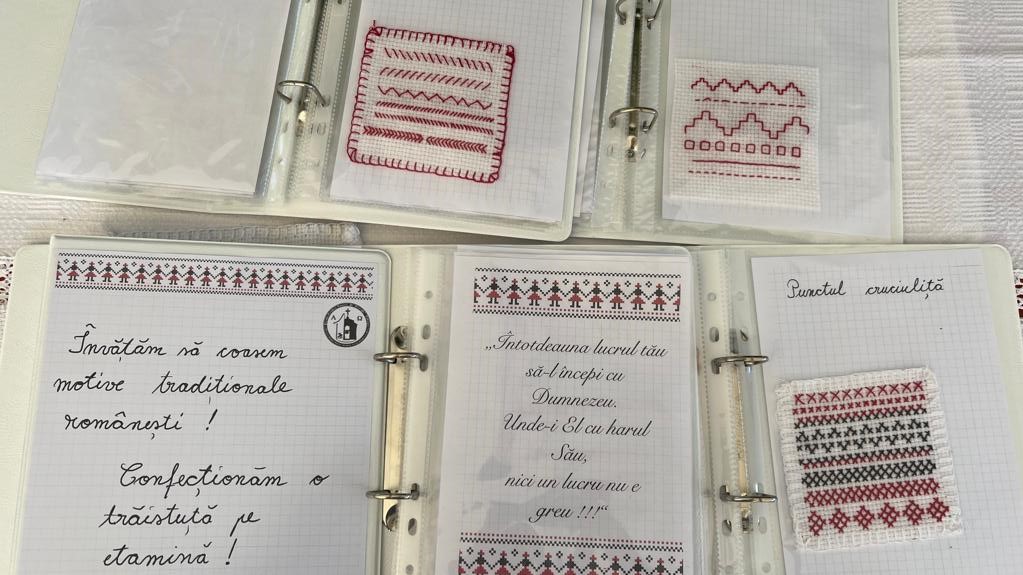 Învățăm să coasem
motive tradiționale
românești !
Confecționăm o
trăistuță pe
etamină !
„Întotdeauna lucrul tău
să-l începi cu
Dumnezeu.
Unde-i El cu harul
Său,
nici un lucru nu e
greu !!!“
Punctul cruciuliță
A Ω